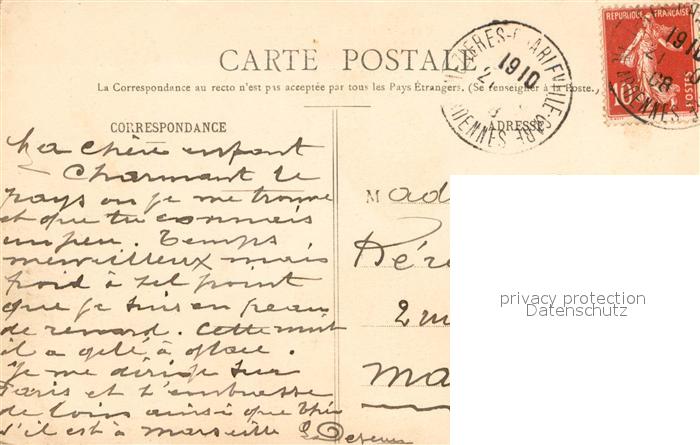 CARTE POSTALE
La Correspondance au recto n'est pas acceptée par tous les Pays Étrangers. (Se renseigner à la Poste.)
MÉZIÈRES-CHARLEVILLE-GARE
1910
21
ARDENNES
RÉPUBLIQUE FRANÇAISE
10
POSTES
1910
21
08
ARDENNES
CORRESPONDANCE
ADRESSE
Ma chère enfant
Charmant le
pays ou je me trouve
et que tu connais
un peu. Temps
merveilleux mais
froid à tel point
que je suis en peau
de renard. Cette nuit
il a gelé à glace.
Je me dirige sur
Paris et t'embrasse
de loin ainsi que
s'il est à Marseille
Mad
2
Ma
privacy protection
Datenschutz